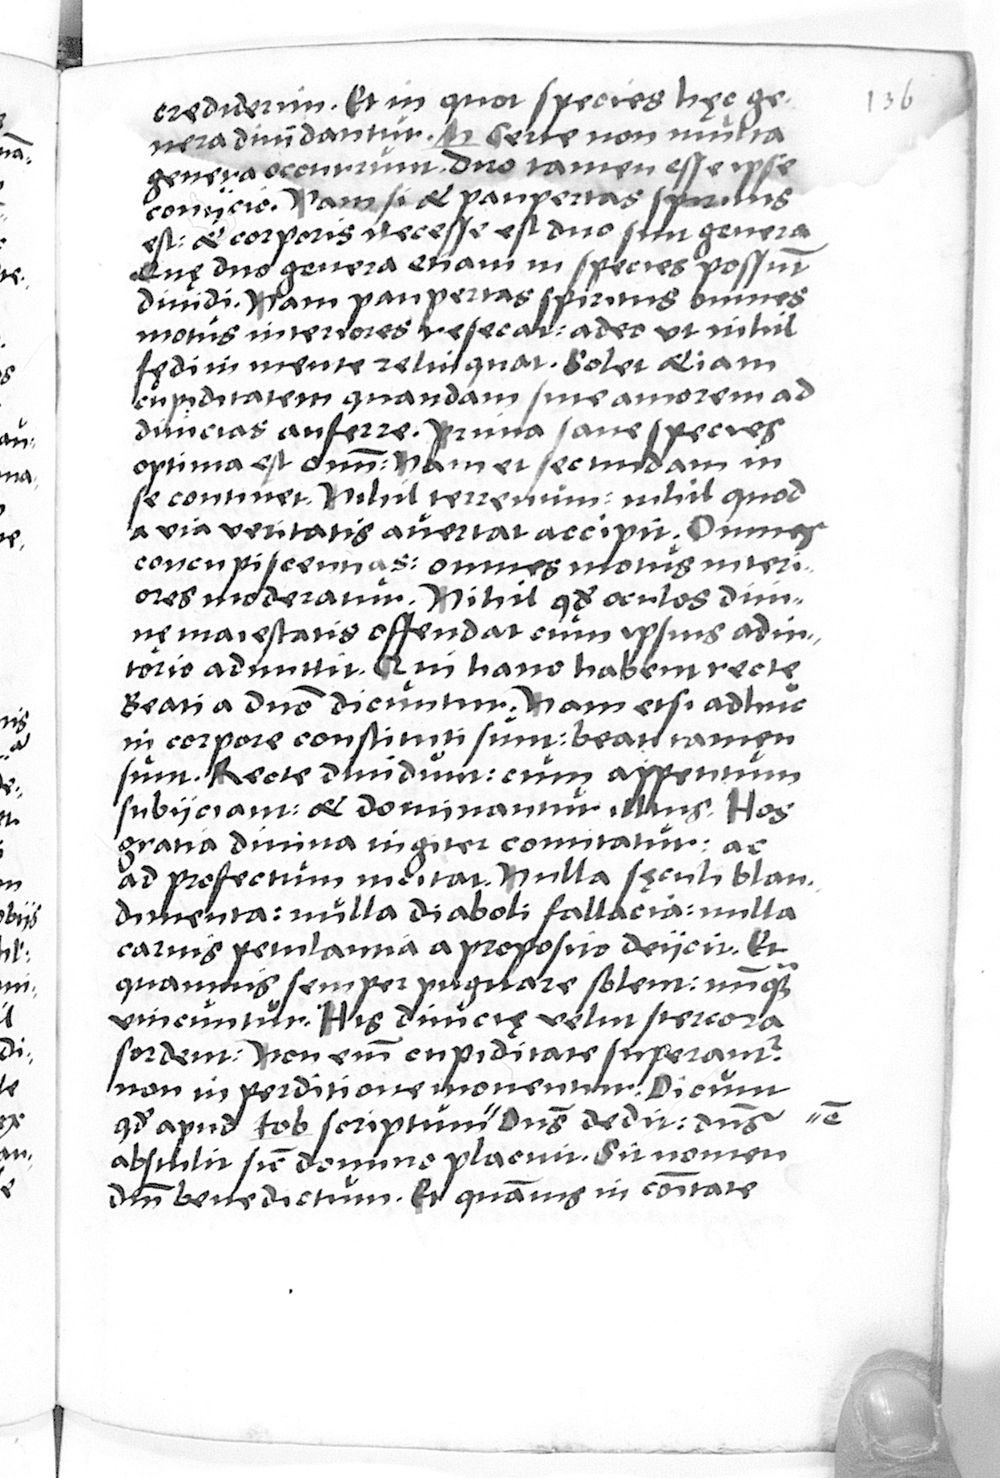 136
crediderim. Et in quot species hęc ge-
nera diuidantur. M Certe non multa
genera occurrunt. Duo tamen esse ipse
coniicio. Nam si & paupertas spiritus
est: & corporis necesse est duo sint genera
Quę duo genera etiam in species possūt
diuidi. Nam paupertas spiritus omnes
motus interiores resecat: adeo vt nihil
fędi in mente relinquat. Solet etiam
cupiditatem quandam siue amorem ad
diuicias auferre. Prima sane species
optima est omĩ: Nam et secundam in
se continet. Nihil terrenum: nihil quod
a via veritatis auertat accipit. Omnes
concupiscentias: omnes motus interi-
ores moderatur. Nihil qđ oculos diui-
nę maiestatis offendat cum ipsius adiu-
torio admittit. Qui hanc habent recte
Beati a dnō dicuntur. Nam etsi adhuc
in corpore constituti sunt: beati tamen
sunt. Recte diuidunt: cum appetitum
subiiciant: & dominantur illius. Hos
gratia diuina iugiter comitatur: ac
ad profectum incitat. Nulla sęculi blan-
dimenta: nulla diaboli fallacia: nulla
carnis petulantia a proposito deiicit. Et
quamuis semper pugnare solent: nūq̃
vincuntur. His diuicię velut stercora
sordent: Non em̃ cupiditate superant᷑:
non in perditione mouentur. Dicunt
qđ apud Iob scriptum" Dñs dedit: dñs "ē
abstulit sic̃ domino placuit. Sit nomen
dñi benedictum. Et quāuis in cōitate